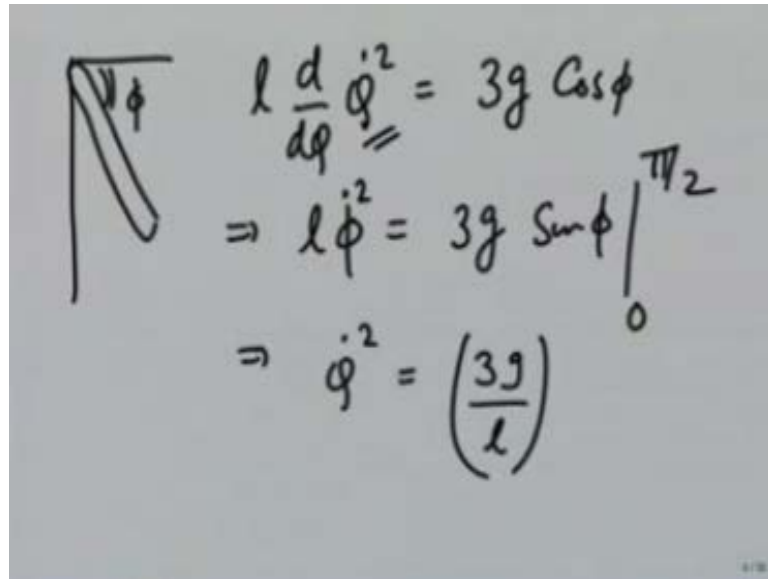 ϕ
l d/dφ φ̇² = 3g Cosϕ
⇒ l ϕ̇² = 3g Sinϕ |₀^π/2
⇒ φ̇² = (3g/l)